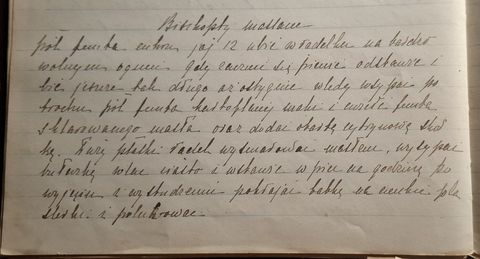 Biszkopty maślane
pół funta cukru, jaj 12 ubić w radelku na bardzo
wolnym ogniu. Gdy zacznie się pienić odstawić i
bić jeszcze tak długo aż ostygnie wtedy wsypać po
trochu pół funta kartoflanej mąki i ćwierć funta
sklarowanego masła oraz dodać otartą cytrynową skór
kę. Duży płaski wysmarować masłem, wysypać
bułeczką wlać ciasto i wstawić w piec na godzinę po
wyjęciu i wystudzeniu pokrajać babkę na cienkie pla
sterki i polukrować